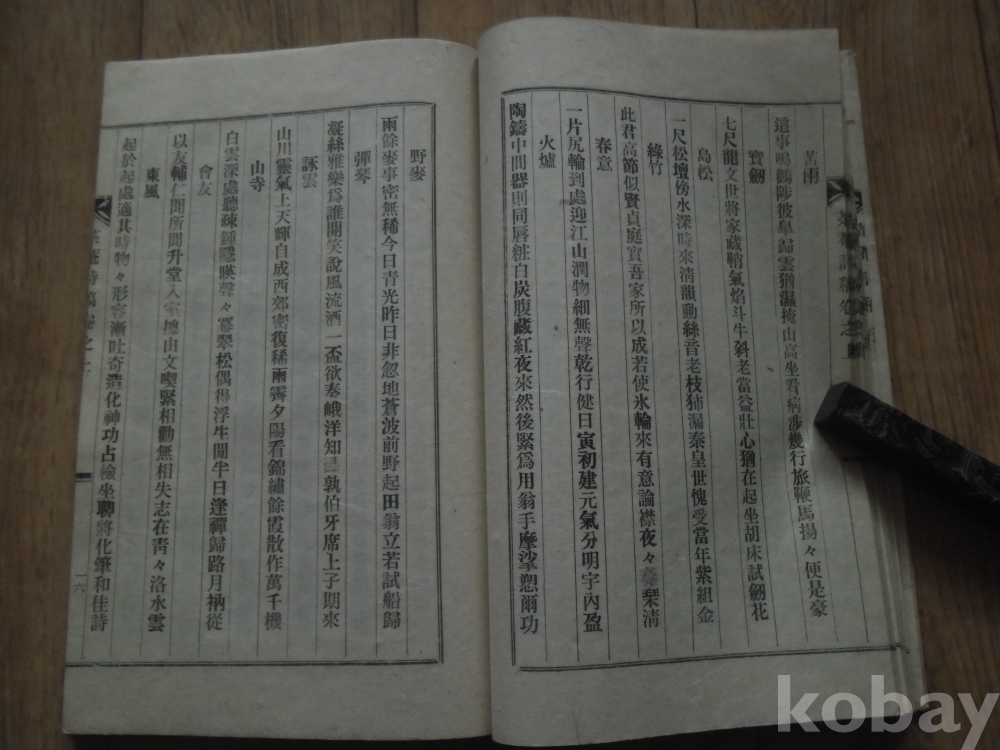 苦雨
這事鳴鶴陟彼皐歸雲猶濕掩山高坐看病涉幾行旅鞭馬揚々便是豪
寶劒
七尺龍文世將家藏鞘氣焰斗牛斜老當益壯心猶在起坐胡床試劒花
島松
一尺松壇傍水深時來淸韻動絲音老枝猶漏秦皇世愧受當年紫組金
綠竹
此君高節似賢貞庭實吾家所以成若使氷輪來有意論襟夜々 琹淸
春意
一片尻輪到處迎江山潤物細無聲乾行健日寅初建元氣分明宇內盈
火爐
陶鑄中間器則同唇粧白炭腹藏紅夜來然後緊爲用翁手摩挲恕爾功
野麥
雨餘麥事密無稀今日靑光昨日非忽地蒼波前野起田翁立若試船歸
彈琴
凝絲雅樂爲誰開笑說風流酒一盃欲奏峨洋知己孰伯牙席上子期來
詠雲
山川靈氣上天輝自成西郊密復稀雨霽夕陽看錦繡餘霞散作萬千機
山寺
白雲深處聽疎鍾隱暎聲々冪翠松偶得浮生閒半日逢禪歸路月衲從
會友
以友輔仁聞所聞升堂入室地由文喫緊相勸無相失志在靑々洛水雲
東風
起於起處適其時物々形容漸吐奇造化神功占檢坐聊將化筆和佳詩
詩稿卷之
一六
kobay